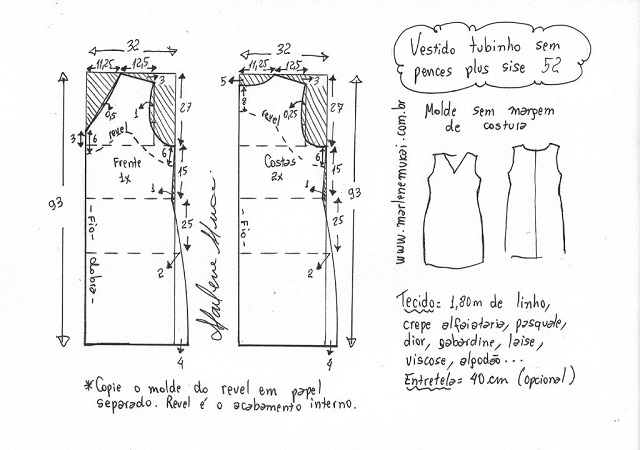 Vestido tubinho sem
pences plus sise 52
Molde sem margem
de costura
www.marlenemukai.com.br
32
11,25
12,5
3
27
1
0,5
revel
3
6
Frente
1x
6
15
1
25
93
-Fio-
dobra-
2
4
Marlene Mukai
32
11,25
12,5
5
3
8
27
0,25
revel
Costas
2x
6
15
1
25
93
-Fio-
2
4
Tecido= 1,80m de linho,
crepe alfaiataria, pasquale,
dior, gabardine, laise,
viscose, algodão...
Entretela= 40cm (opcional)
*Copie o molde do revel em papel
separado. Revel é o acabamento interno.